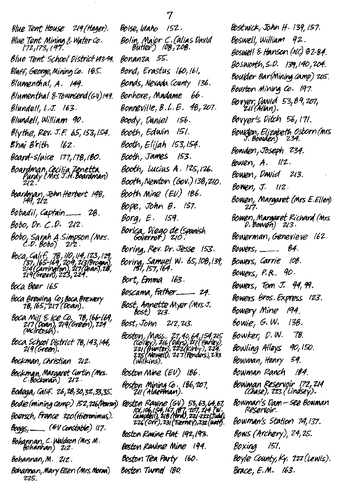 7
Blue Tent House 219 (Hager).
Blue Tent Mining & Water Co.
172, 173, 197.
Blue Tent School District
Bluff, George, Mining Co. 185.
Blumenthal, A. 149.
Blumenthal & Townsend (GV) 149.
Blundell, L.J. 163.
Blundell, William 90.
Blythe, Rev. J.F. 65, 153, 154.
B'nai B'rith 162.
Board-sluice 177, 178, 180.
Boardman, Cecilia Zenetta
Purdy (Mrs J.H. Boardman)
212.
Boardman, John Herbert 198,
199, 212
Bobadil, Captain 28.
Bobo, Dr. C.D. 212.
Bobo, Sarah A. Simpson (Mrs.
C.D. Bobo) 212.
Boca, Calif.
Boca Beer 165
Boca Brewing Co; Boca Brewery
78, 165, 217 (Doan).
Boca Mill & Ice Co. 78, 166-169,
217 (Doan), 219 (Green), 224
(McIntosh).
Boca School District 78, 143, 144,
219 (Green).
Bockman, Christian 212.
Bockman, Margaret Curtin (Mrs.
C. Bockman) 212.
Bodega, Calif. 26, 28, 30, 32, 33, 35.
Bodie (mining camp)
Boersch, France 220 (Hieronimus).
Boggs, (GV Constable) 117.
Bohannan, C. Waldron (Mrs M.
Bohannan) 212.
Bohannan, M. 212.
Bohannan, Mary Ellen (Mrs Morin)
225.
Boise, Idaho 152.
Bolin, Major C. (alias David
Butler) 108, 208.
Bonanza 55.
Bond, Erastus 160, 161.
Bonds, Nevada County 136.
Bonhore, Madame 66.
Bonneville, B.L.E. 48, 207.
Boody, Daniel 156.
Booth, Edwin 151.
Booth, Elijah 153, 154.
Booth, James 153.
Booth, Lucius A. 125, 126.
Booth, Newton (Gov.) 138, 210.
Booth Mine (EU) 186.
Pope, John B. 157.
Borg, E. 159.
Borica, Diego de (Spanish
Governor) 210.
Boring, Rev. Dr. Jesse 153.
Boring, Samuel W. 65, 108, 139,
151, 157, 164.
Bort, Emma 163.
Boscama, Father 24.
Bost, Annette Myer (Mrs J.
Bost) 213.
Bost, John 212, 213.
Boston, Mass.
Boston Mine (EU) 186.
Boston Mining Co. 186, 207,
211 (Haffman).
Boston Ravine (GV)
Boston Ravine Flat 192, 193.
Boston Ravine Mine 194.
Boston Tea Party 160.
Boston Tunnel 180
Bostwick, John H. 139, 157.
Boswell, William 92.
Boswell & Hanson (NC) 82-84.
Bosworth, S.D. 139, 190, 204.
Boulder Bar (Mining Camp) 205.
Bourton Mining Co. 197.
Bovyer, David 53, 89, 207,
211 (Allan).
Bovyer's Ditch 56, 171.
Bowden, Elizabeth Osborn (Mrs
J. Bowden) 234.
Bowden, Joseph 234.
Bowen, A. 112.
Bowen, David 213.
Bowen, J. 112.
Bowen, Margaret (Mrs E. Ellen)
217.
Bowen, Margaret Richard (Mrs
D. Bowen) 213.
Bowerman, Genevieve 162.
Bowers, 84.
Bowers, Carrie 108.
Bowers, P.R. 90.
Bowers, Tom J. 94, 99.
Bowers Bros. Express 123.
Bowery Mine 194.
Bowie, G.W. 138.
Bowker, C.W. 78.
Bowling Alleys 90, 150.
Bowman, Henry 59.
Bowman Ranch 184.
Bowman Reservoir (72, 214
(Chase), 223 (Lindsey).
Bowman's Dam - see Bowman
Reservoir.
Bowman's Station 74, 137.
Bows (Archery) 24, 25.
Boxing 151.
Boyle County, Ky. 222 (Lewis).
Brace, E.M. 163.